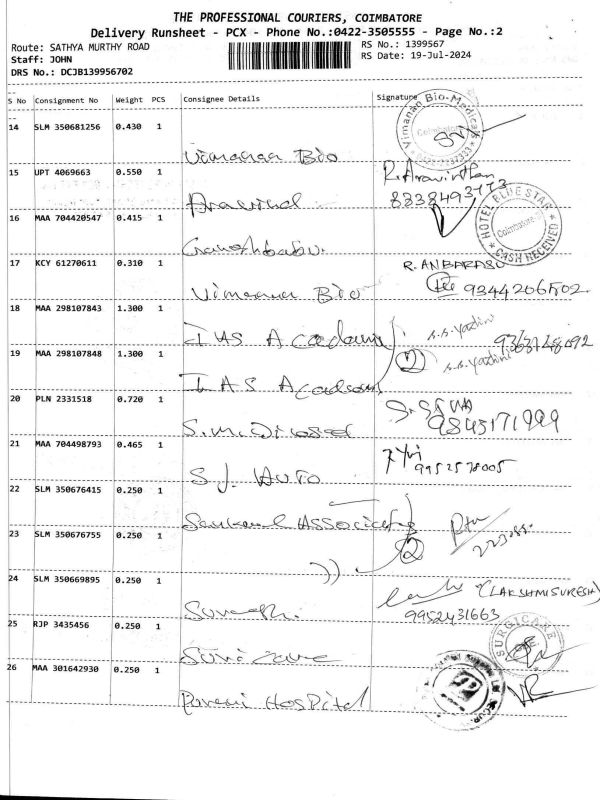 THE PROFESSIONAL COURIERS, COIMBATORE
Delivery Runsheet - PCX - Phone No.:0422-3505555 - Page No.:2
Route: SATHYA MURTHY ROAD
RS No.: 1399567
Staff: JOHN
RS Date: 19-Jul-2024
DRS No.: DCJB139956702
S No Consignment No Weight PCS Consignee Details Signature
14 SLM 350681256 0.430 1
Vimanan Bio-Medical
Coimbatore
Vimanan Bio
15 UPT 4069663 0.550 1
R.Aravinthan
Aravind
16 MAA 704420547 0.415 1
HOTEL BLUE STAR
Coimbatore
CASH RECEIVED
17 KCY 61270611 0.310 1
R. ANBARASU
Vimanan Bio
9344206502.
18 MAA 298107843 1.300 1
S.S. Yazhini
IAS Academy
2
19 MAA 298107848 1.300 1
S.S. Yazhini
IAS Academy
20 PLN 2331518 0.720 1
9843171999
21 MAA 704498793 0.465 1
9952578005
S J. AUTO
22 SLM 350676415 0.250 1
Associates
23 SLM 350676755 0.250 1
2
))
24 SLM 350669895 0.250 1
(LAKSHMISURESH)
9952431663
Suresh.
25 RJP 3435456 0.250 1
SURGICARE
Surgicare
26 MAA 301642930 0.250 1
Hospital